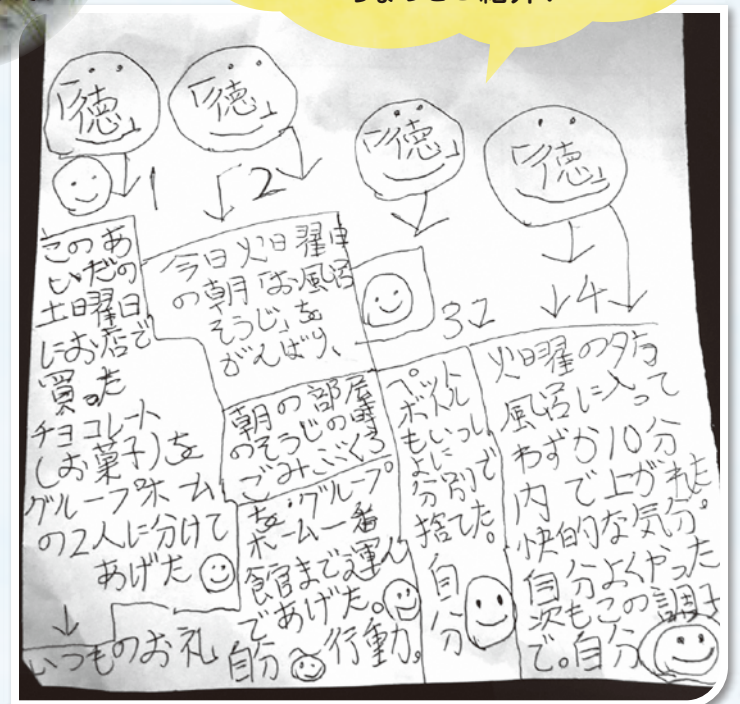 「徳」
「徳」
「徳」
「徳」
1
このあ
いだの
土曜日
にお店で
買った
チョコレート
(お菓子)を
グループホーム
の2人に分けて
あげた
いつものお礼
2
今日火曜日
の朝「お風呂
そうじ」を
がんばり、
朝の部屋
のそうじの時
ごみぶくろ
を、グループ
ホーム一番
まで運ん
であげた。
自分 行動。
3
ペット
ボトル
もいっし
ょに
分別で
捨てた。
自分
4
火曜の夕方
風呂に入って
わずか10分
内で上がれた
快的な気分。
自分もよくやった
次もこの調子
で。自分